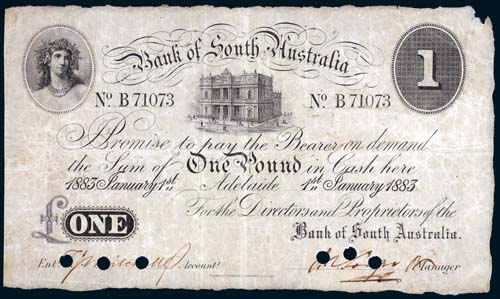 Bank of South Australia
1
No. B 71073 No. B 71073
Promise to pay the Bearer on demand
the Sum of One Pound in Cash here
1883 January 1st. Adelaide 1st. January 1883
For the Directors and Proprietors of the
£ONE
Bank of South Australia.
Ent. Accountt. Manager